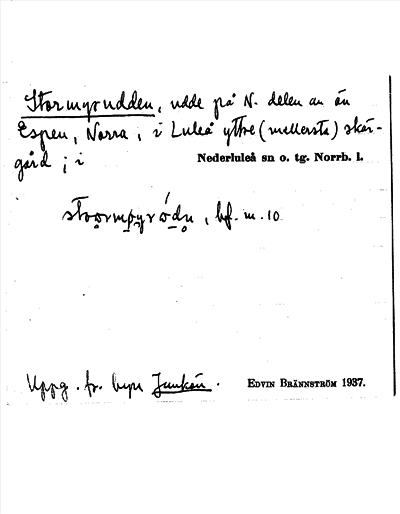 Stormyrudden, udde på N. delen av ön
Espen, Norra, i Luleå yttre (mellersta) skär-
gård; i Nederluleå sn o. tg. Norrb. l.
bf. m. 10
Uppg. fr. byn Junkön. EDVIN BRÄNNSTRÖM 1937.